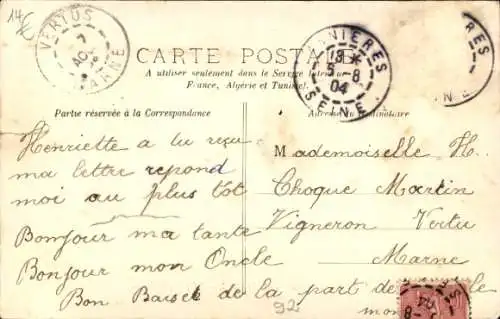 14€
VERTUS
7
AOU
MARNE
CARTE POSTALE
ASNIERES
13 *
5-8
04
SEINE
A utiliser seulement dans le Service Intérieur
France, Algérie et Tunisie.
Partie réservée à la Correspondance
Adresse du Destinataire
Henriette a tu reçu
ma lettre repond
moi au plus tôt
Bonjour ma tante
Bonjour mon Oncle
Bon Baiset de la part de
Mademoiselle H.
Choque Martin
Vigneron Vertu
Marne
92